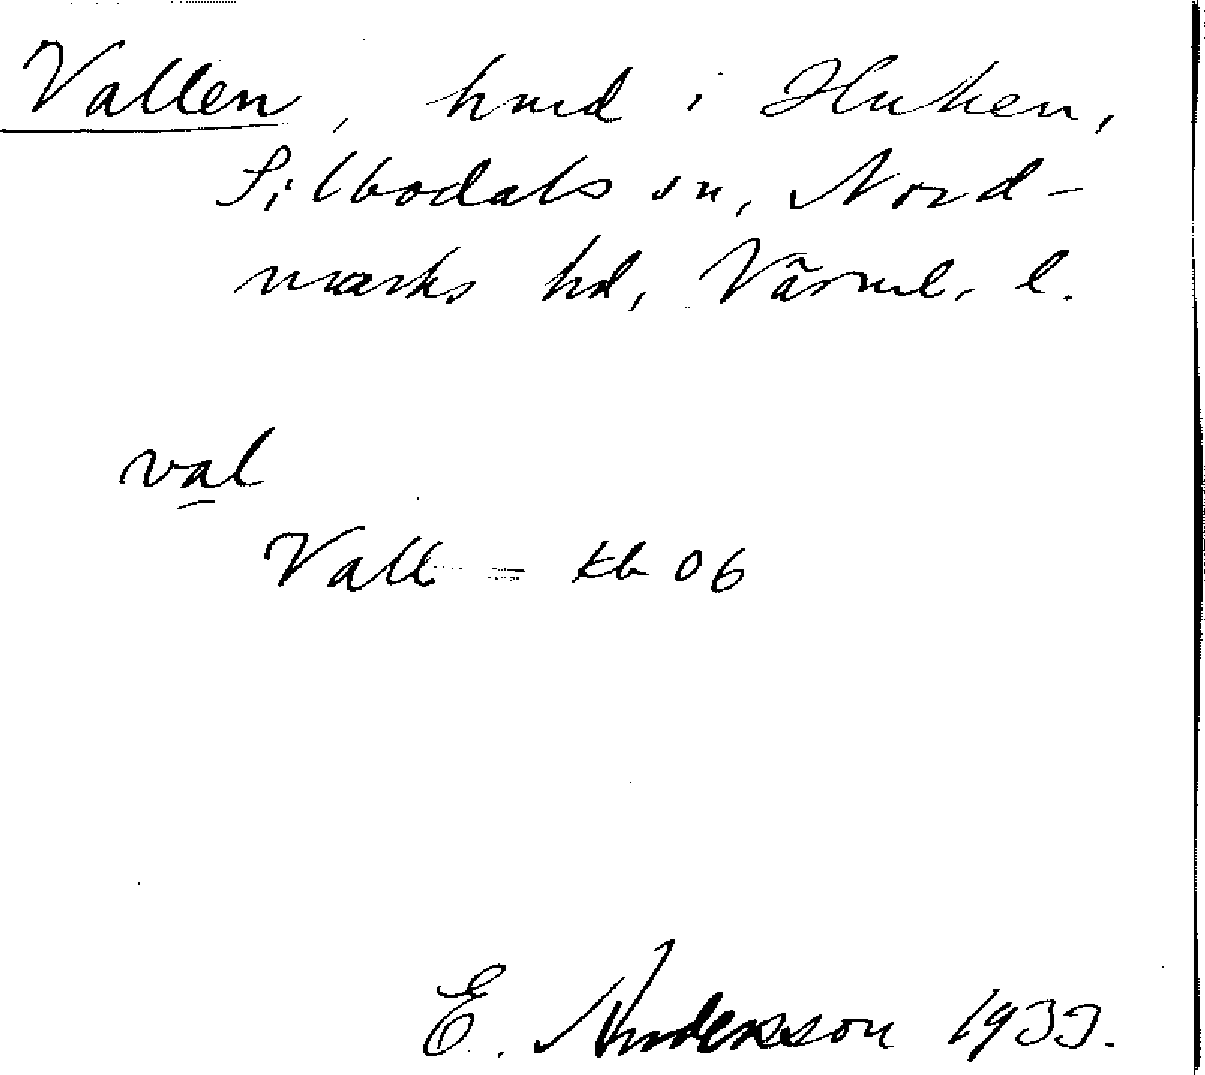 Vallen, hmd i Huken,
Silbodals sn, Nord-
marks hd, Värml. l.
val
Vall - kb 06
E. Anderson 1933.